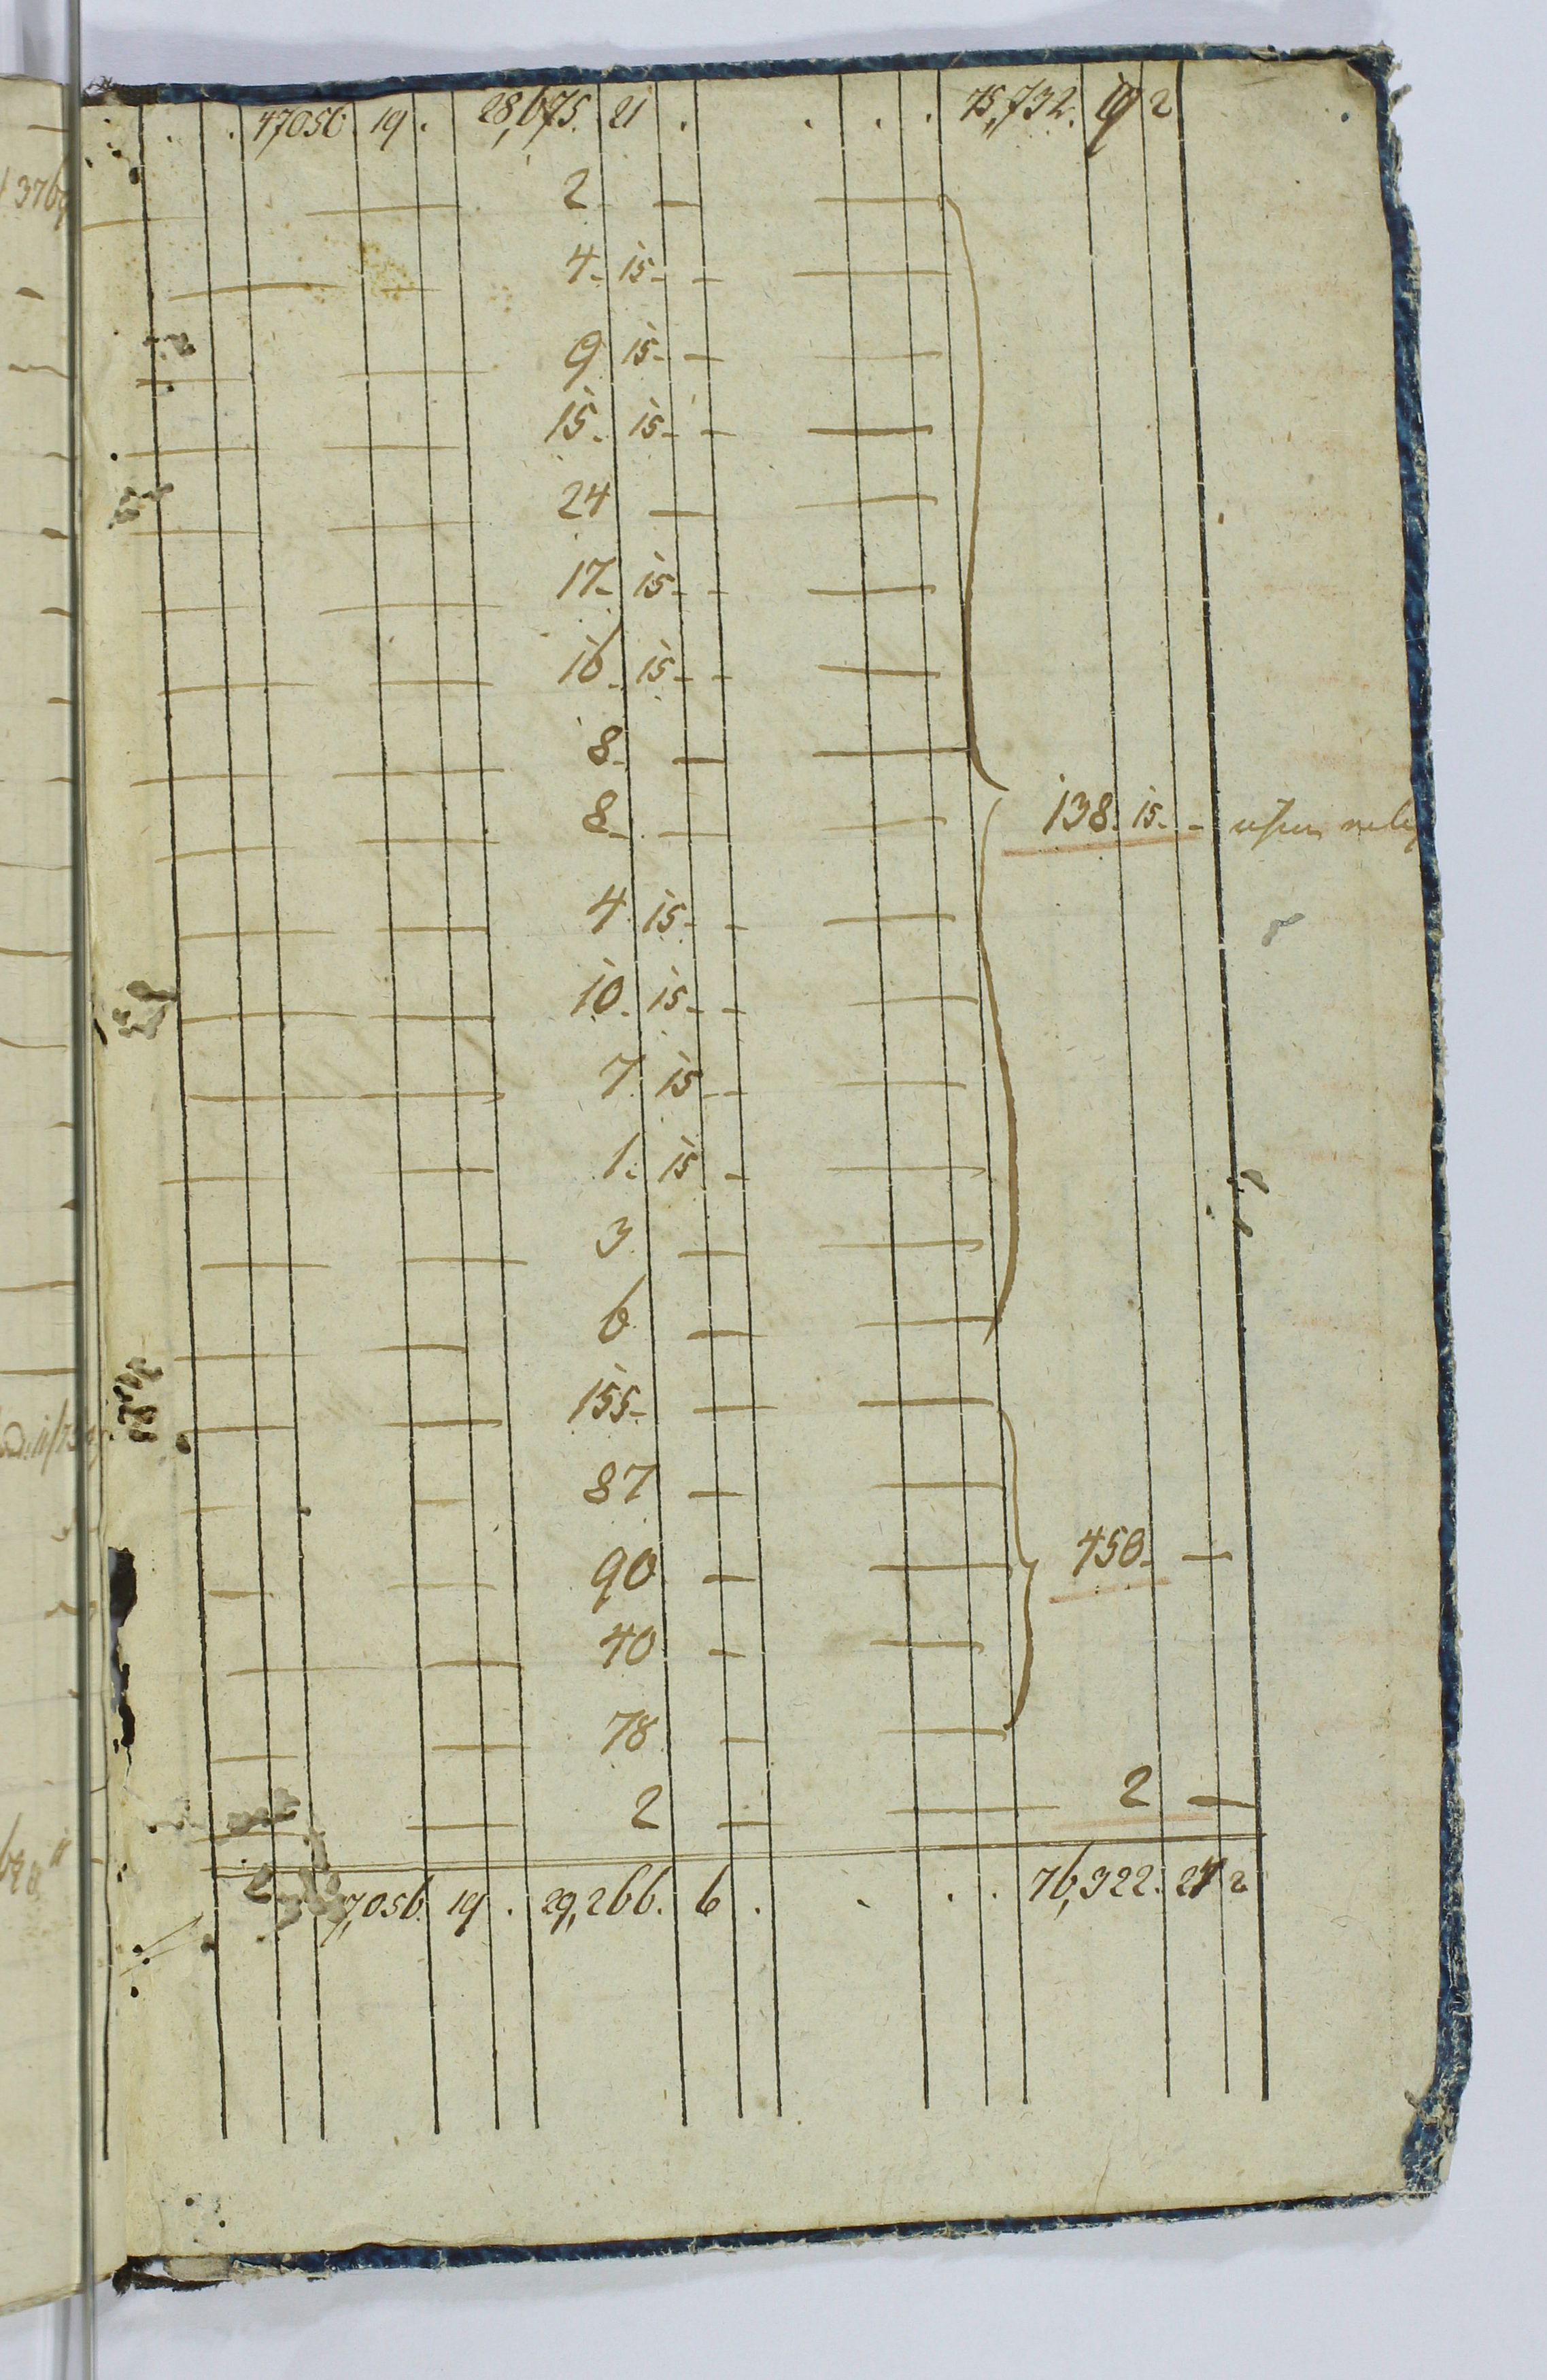 47,056. 19. 28,675. 21 . . . . 75,732. 19 2
2 —
4. 15 -
9 15 -
15. 15 -
24 —
17. 15 -
16. 15 -
8 —
8 —
138. 15 -
4. 15 -
10. 15 -
7. 15 -
1. 15 -
3 —
6 —
155 —
87 —
90 —
450 —
40 —
78 —
2 — 2 —
7,056. 19 . 29,266. 6 . . . . 76,322. 2